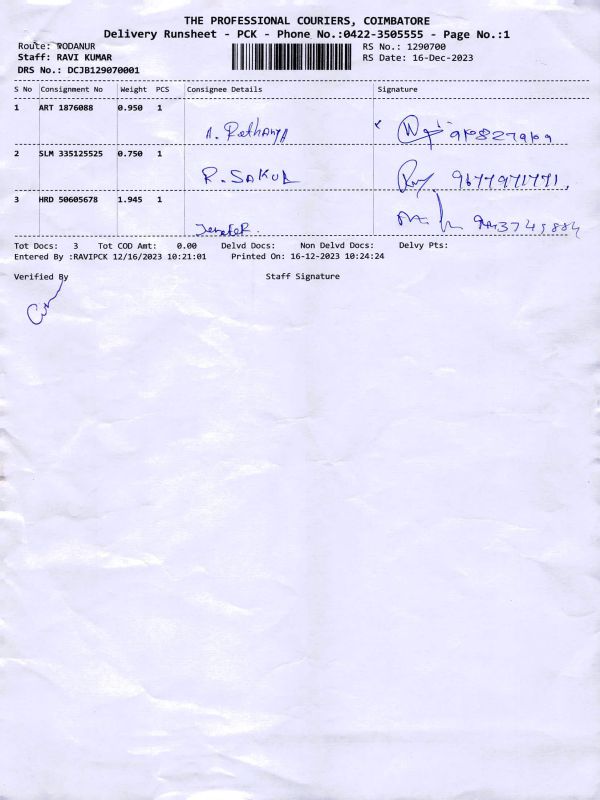 THE PROFESSIONAL COURIERS, COIMBATORE
Delivery Runsheet - PCK - Phone No.:0422-3505555 - Page No.:1
Route: PODANUR
Staff: RAVI KUMAR
DRS No.: DCJB129070001
RS No.: 1290700
RS Date: 16-Dec-2023
S No Consignment No Weight PCS Consignee Details Signature
1 ART 1876088 0.950 1
A. Rathanya
2 SLM 335125525 0.750 1
R. SAKUL 9677971771,
3 HRD 50605678 1.945 1
Tot Docs: 3 Tot COD Amt: 0.00 Delvd Docs: Non Delvd Docs: Delvy Pts:
Entered By :RAVIPCK 12/16/2023 10:21:01 Printed On: 16-12-2023 10:24:24
Verified By Staff Signature